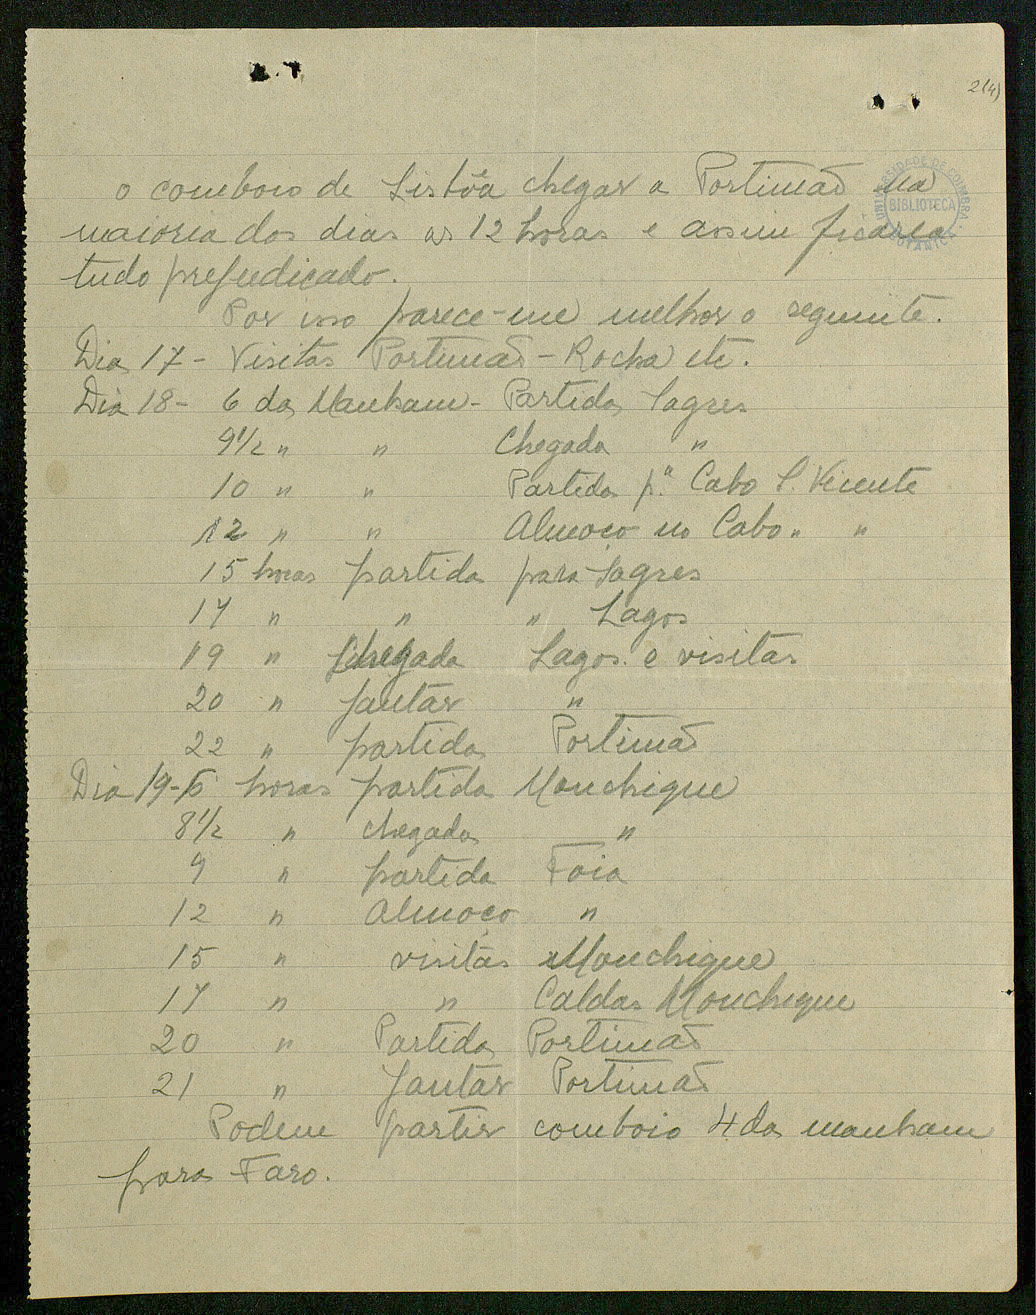 2(4)
UNIVERSIDADE DE COIMBRA
BIBLIOTECA
BOTANICA
o comboio de Lisbôa chegar a Portimão na
maioria dos dias as 12 horas e assim ficaria
tudo prejudicado.
Por isso parece-me melhor o seguinte.
Dia 17 - Visitas Portimão - Rocha etc.
Dia 18 - 6 da Manham - Partida Sagres
9 1/2 " " Chegada "
10 " " Partida p.ª Cabo S. Vicente
12 " " Almoço no Cabo " "
15 horas partida para Sagres
17 " " " Lagos
19 " Chegada Lagos e visitas
20 " Jantar "
22 " partida Portimão
Dia 19 - 6 horas partida Monchique
8 1/2 " chegada "
9 " partida Foia
12 " Almoço "
15 " visitas Monchique
17 " " Caldas Monchique
20 " Partida Portimão
21 " Jantar Portimão
Podem partir comboio 4 da manham
para Faro.